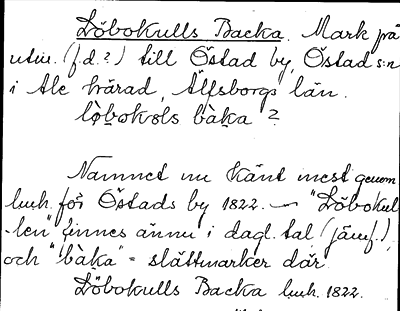 Döbokulls Backa. Mark på
utm. (f.d.?) till Östad by, Östad s:n
i Ale härad, Älfsborgs län.
bàka ?
Namnet nu känt mest genom
lmh. för Östads by 1822. — "Döbokul-
-len" finnes ännu i dagl. tal (jämf.)
och "bàka" = slåttmarker där.
Döbokulls Backa lmh. 1822.